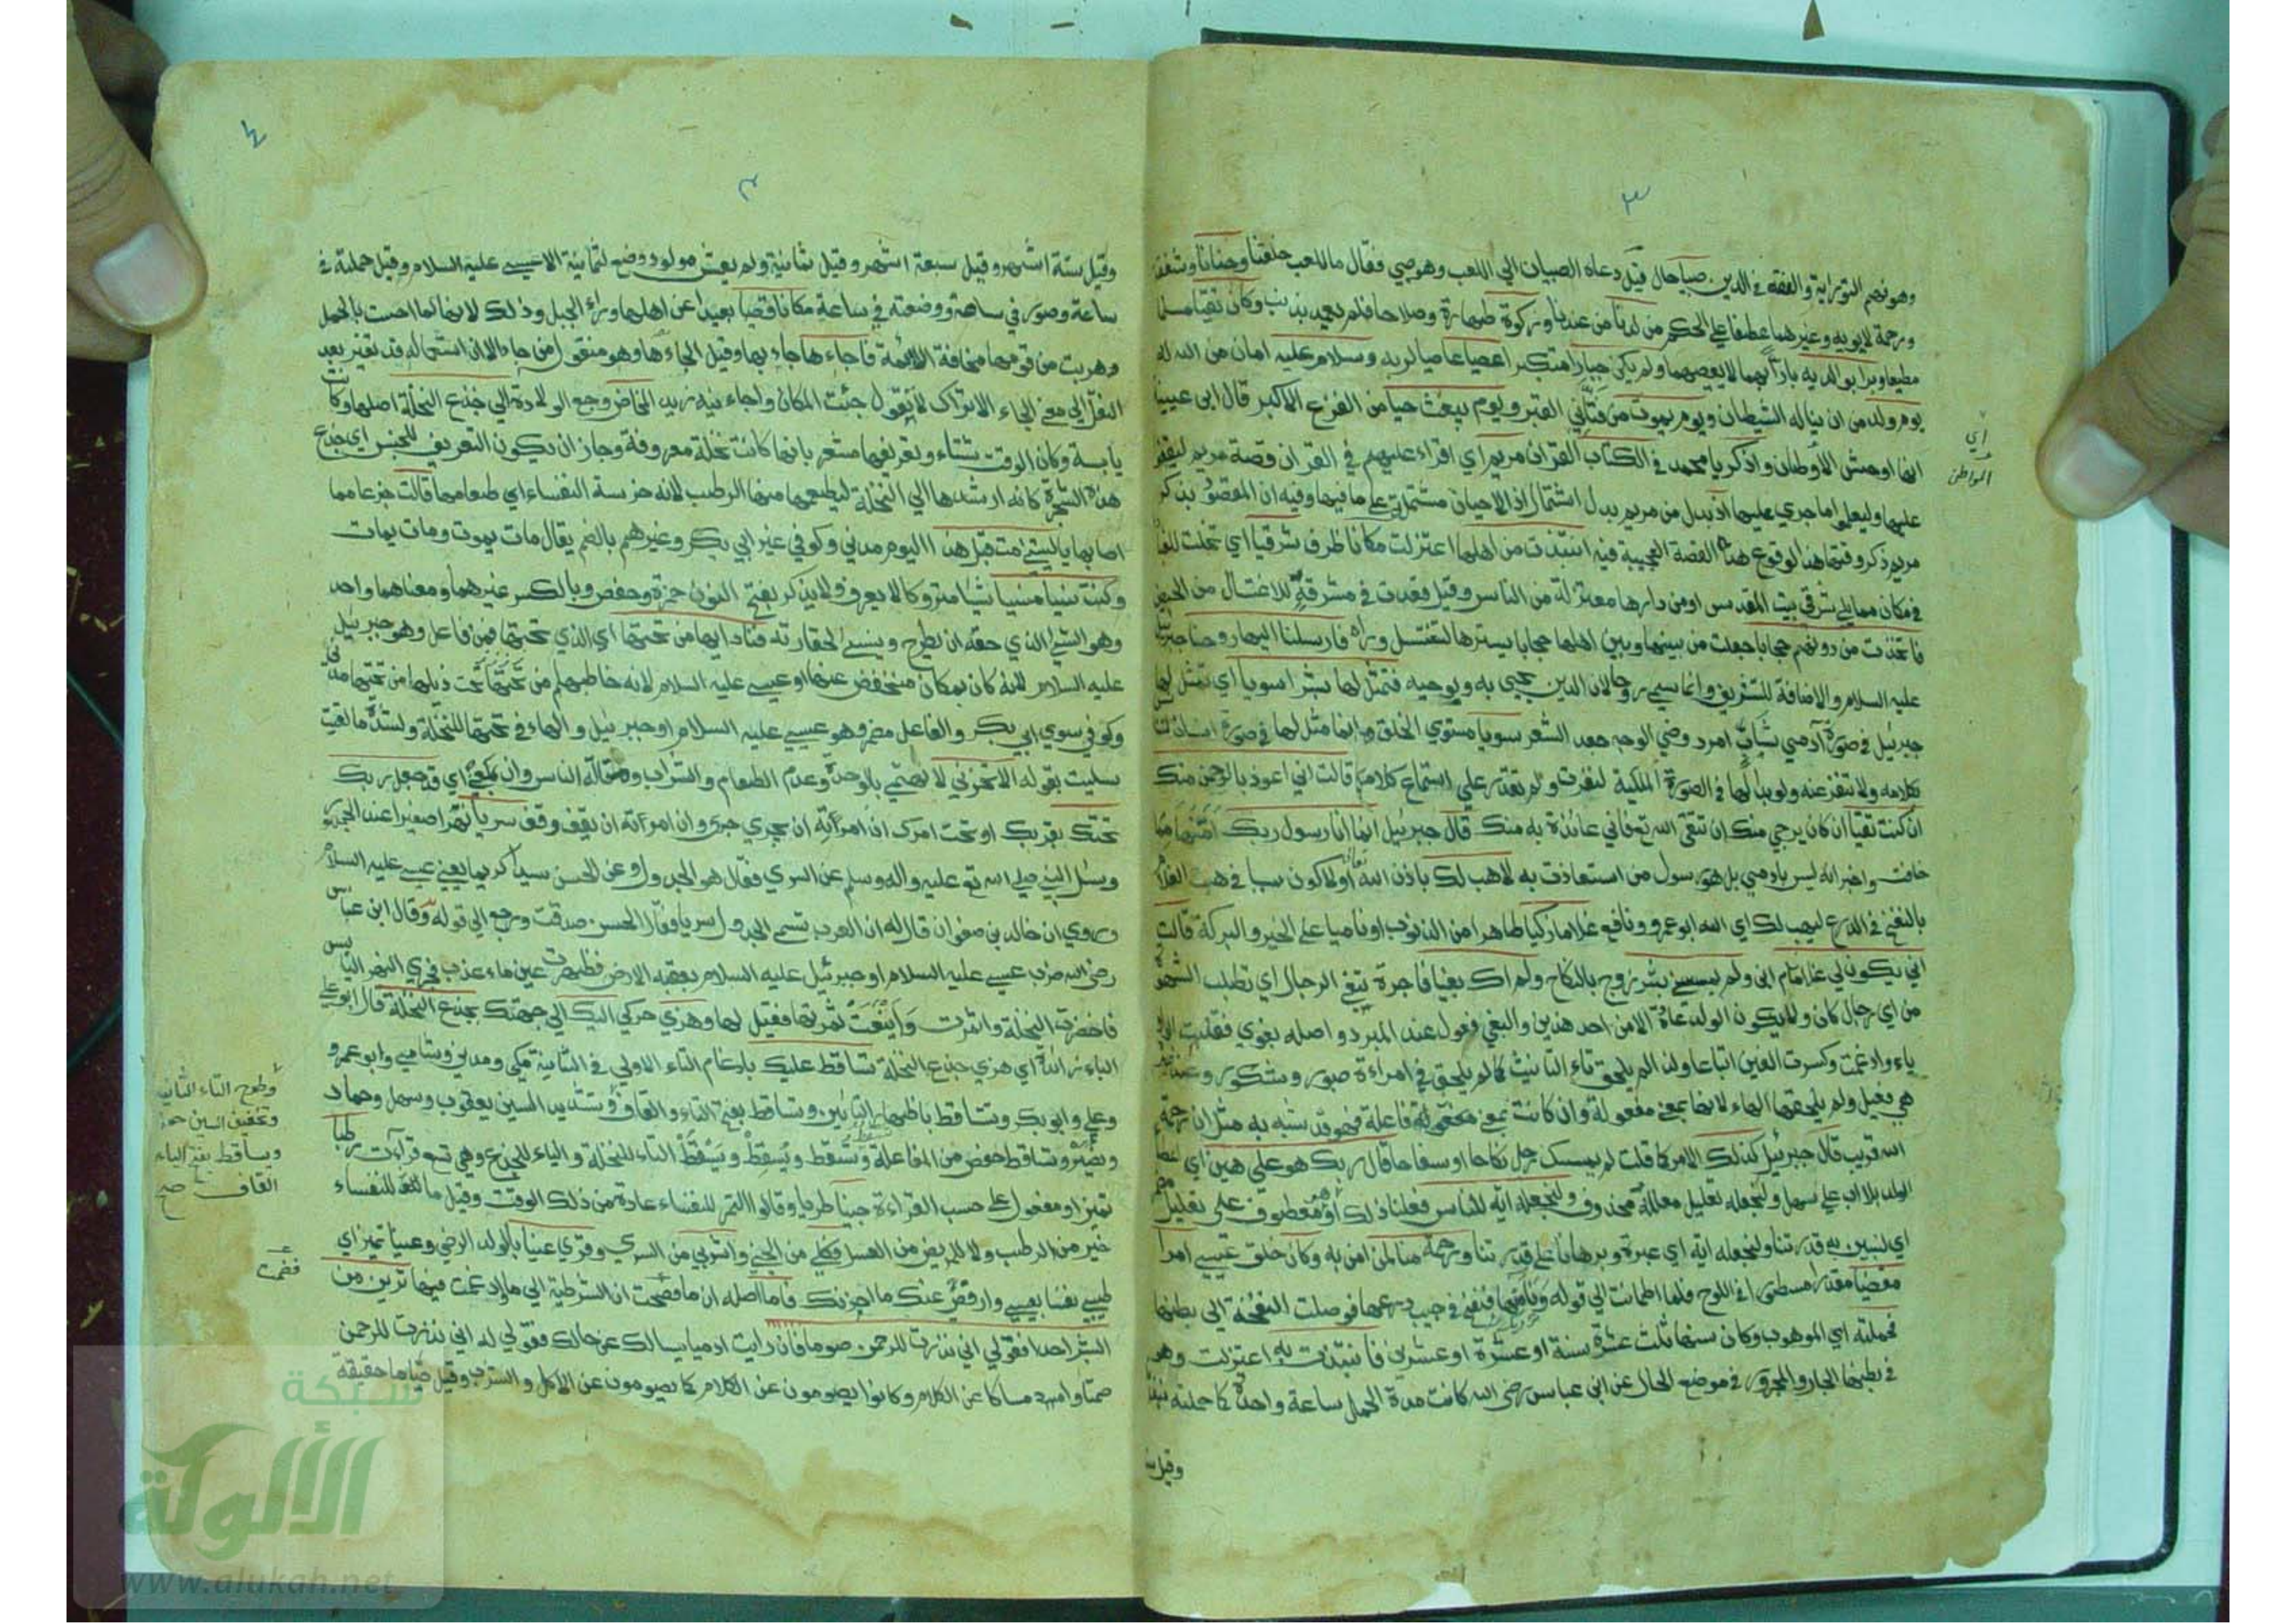 ٣
وهو فهم التوراية والفقه في الدين صبيا حال قيل دعاه الصبيان الي اللعب وهو صبي فقال ما للعب خلقنا وحنانا وشفقة
ورحمة لابويه وغيرهما عطفا علي الحكم من لدنا من عندنا وزكوة طهارة وصلاحا فلم يعمد بذنب وكان تقيا مسلما
مطيعا وبرا بوالديه بارا بهما لا يعصيهما ولم يكن جبارا متكبرا عصيا عاصيا لربه وسلام عليه امان من الله له
يوم ولد من ان يناله الشيطان ويوم يموت من فتاني القبر ويوم يبعث حيا من الفزع الاكبر قال ابن عيينة
انها اوحش الاوطان واذكر يا محمد في الكتاب القرآن مريم اي اقراء عليهم في القرآن قصة مريم ليقفوا
عليها وليعلموا ما جري عليها اذ بدل من مريم بدل اشتمال اذ الاحيان مشتملة علي ما فيها وفيه ان المقصود بذكر
مريم ذكر وقتها هذا لوقوع هذه القصة العجيبة فيه انتبذت من اهلها اعتزلت مكانا ظرف شرقيا اي تخلت للعبادة
في مكان مما يلي شرقي بيت المقدس او من دارها معتزلة من الناس وقيل فقعدت في مشرقة للاغتسال من الحيض
فاتخذت من دونهم حجابا جعلت من بينها وبين اهلها حجابا يسترها لتغتسل وراه فارسلنا اليها روحنا جبرئيل
عليه السلام والاضافة للتشريف وانما سمي روحا لان الدين يحيي به وبوحيه فتمثل لها بشرا سويا اي تمثل لها
جبرئيل في صورة آدمي شاب امرد وضي الوجه جعد الشعر سويا مستوي الخلق وانما مثل لها في صورة انسان
بكلامه ولا تنفر عنه ولو بدا لها في الصورة الملكية لنفرت ولم تقدر علي استماع كلامه قالت اني اعوذ بالرحمن منك
ان كنت تقيا ان كان يرجي منك ان تتقي الله تع فاني عائذة به منك قال جبرئيل انما انا رسول ربك امنها مما
خافت واخبر انه ليس بادمي بل هو رسول من استعاذت به لاهب لك باذن الله تعالي او لاكون سببا في هبة الغلام
بالنفخ في الدرع ليهب لك اي الله ابو عمرو ونافع غلاما زكيا طاهرا من الذنوب او ناميا علي الخير والبركة قالت
اني يكون لي غلام ولم يمسسني بشر زوج بالنكاح ولم اك بغيا فاجرة تبغي الرجال اي تطلب الشهوة
من اي رجل كان ولا يكون الولد عادة الا من احد هذين والبغي فعول عند المبرد واصله بغوي فقلبت الواو
ياء وادغمت وكسرت الغين اتباعا ولذا لم يلحق تاء التانيث كما لم يلحق في امراءة صبور وشكور وعند
هي فعيل ولم يلحقها الهاء لانها بمعني مفعولة وان كانت بمعني فاعلة فهو قد شبه به مثل ان رحمة
الله قريب قال جبرئيل كذلك الامر كما قلت لم يمسسك رجل نكاحا او سفاحا قال ربك هو علي هين اي
الولد بلا اب علي سهل ولنجعله تعليل معلله محذوف ولنجعله آية للناس فعلنا ذلك او هو معطوف علي تعليل
اي لنبين به قدرتنا ولنجعله اية اي عبرة وبرهانا علي قدرتنا ورحمة منا لمن امن به وكان خلق عيسي امرا
مقضيا مقدرا مسطورا في اللوح فلما اطمانت الي قوله دنا منها فنفخ في جيب درعها فوصلت النفخة الي بطنها
فحملته اي الموهوب وكان سنها ثلث عشرة سنة او عشرة او عشرين فانتبذت به اعتزلت وهو
في بطنها الجار والمجرور في موضع الحال عن ابن عباس رضي الله كانت مدة الحمل ساعة واحدة كما حملته
وقيل
اي
المواطن
٤
٣
وقيل ستة اشهر وقيل سبعة اشهر وقيل ثمانية ولم يعش مولود وضع لثمانية الا عيسي عليه السلام وقيل حملته في
ساعة وصور في ساعة ووضعته في ساعة مكانا قصيا بعيدا عن اهلها وراء الجبل وذلك لانها لما احست بالحمل
وهربت من قومها مخافة اللائمة فاجاءها جاء بها وقيل الجاءها وهو منقول من جاء الا ان استعماله قد تغير بعد
النقل الي معني الجاء الا تراك لا تقول جئت المكان واجاءنيه زيد المخاض وجع الولادة الي جذع النخلة اصلها وكانت
يابسة وكان الوقت شتاء وتعريفها مشعر بانها كانت نخلة معروفة وجاز ان يكون التعريف للجنس اي جذع
هذه الشجرة كانه ارشدها الي النخلة ليطعمها منها الرطب لانه خرسة النفساء اي طعامها قالت جزعا مما
اصابها يا ليتني مت قبل هذا اليوم مدني وكوفي غير ابي بكر وغيرهم بالضم يقال مات يموت ومات يمات
وكنت نسيا منسيا شيا متروكا لا يعرف ولا يذكر بفتح النون حمزة وحفص وبالكسر غيرهما ومعناهما واحد
وهو الشي الذي حقه ان يطرح وينسي لحقارته فناداها من تحتها اي الذي تحتها فمن فاعل وهو جبرئيل
عليه السلام لانه كان بمكان منخفض عنها او عيسي عليه السلام لانه خاطبها من تحتها تحت ذيلها من تحتها مدني
وكوفي سوي ابي بكر والفاعل مضمر وهو عيسي عليه السلام او جبرئيل والهاء في تحتها للنخلة ولشدة ما لقيت
سليت بقوله الا تحزني لا تهتمي بالوحدة وعدم الطعام والشراب ومقالة الناس وان بمعني اي قد جعل ربك
تحتك بقربك او تحت امرك ان امرته ان يجري جري وان امرته ان يقف وقف سريا نهرا صغيرا عند الجمهور
وسئل النبي صلي الله تع عليه واله وسلم عن السري فقال هو الجدول وعن الحسن سيدا كريما يعني عيسي عليه السلام
وروي ان خالد بن صفوان قال له ان العرب تسمي الجدول سريا فقال الحسن صدقت ورجع الي قوله وقال ابن عباس
رضي الله ضرب عيسي عليه السلام او جبرئيل عليه السلام بعقبه الارض فظهرت عين ماء عذب فجري النهر اليابس
فاخضرت النخلة واثمرت وأينعت ثمرتها فقيل لها وهزي حركي اليك الي جهتك بجذع النخلة قال ابو علي
الباء زائدة اي هزي جذع النخلة تساقط عليك بادغام التاء الاولي في الثانية مكي ومدني وشامي وابو عمرو
وعلي وابو بكر وتتساقط باظهار التائين وتساقط بفتح التاء والقاف وتشديد السين يعقوب وسهل وحماد
ونصير وتساقط حفص من المفاعلة وتسقط ويسقط وتسقط التاء للنخلة والياء للجذع وهي تسع قراءت رطبا
تميز او مفعول علي حسب القراءة جنيا طريا وقالوا التمر للنفساء عادة من ذلك الوقت وقيل ما للنفساء
خير من الرطب ولا للمريض من العسل فكلي من الجني واشربي من السري وقري عينا بالولد الرضي وعينا تميز اي
طيبي نفسا بعيسي وارفضي عنك ما احزنك فاما اصله ان ما فضمت ان الشرطية الي ما وادغمت فيها ترين من
البشر احدا فقولي اني نذرت للرحمن صوما فان رايت ادميا يسالك عن حالك فقولي له اني نذرت للرحمن
صمتا وامساكا عن الكلام وكانوا يصومون عن الكلام كما يصومون عن الاكل والشرب وقيل صياما حقيقة
وطرح التاء الثانية
وتخفيف السين حمزة
ويساقط بفتح الياء
القاف صح
فضمت
شبكة
الألوكة
www.alukah.net